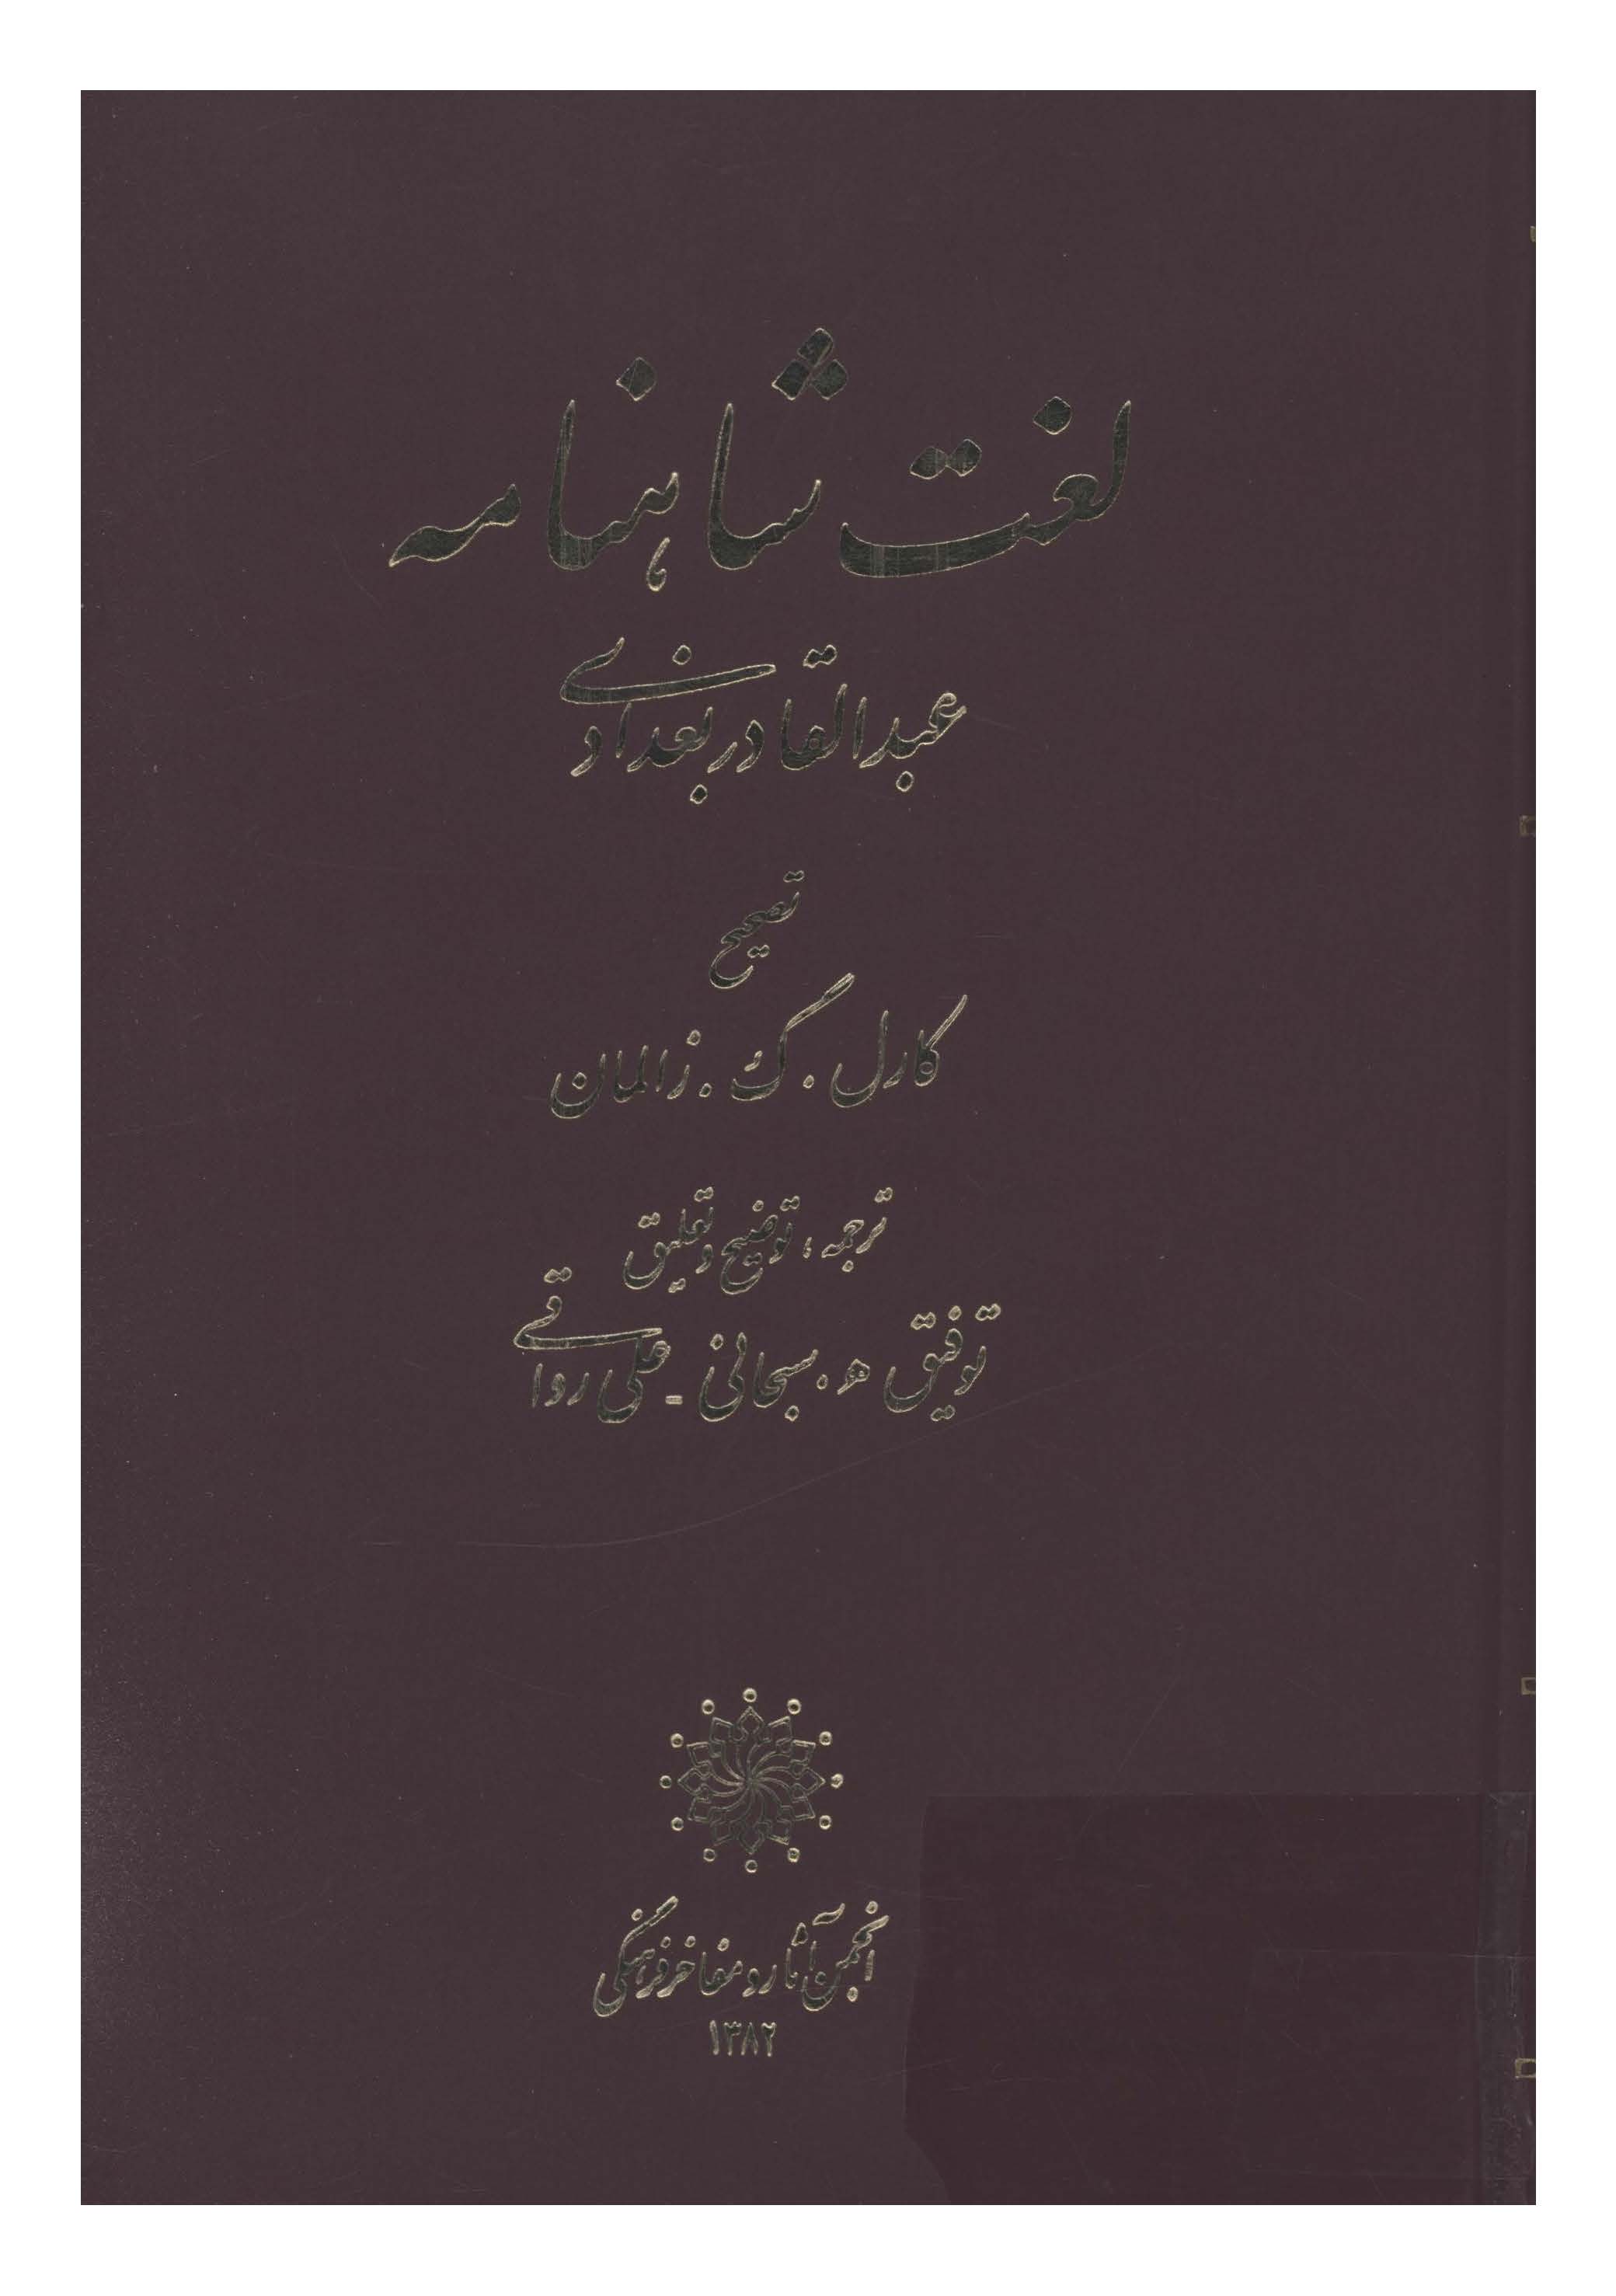 لغت شاهنامه
عبدالقادر بغدادی
تصحیح
کارل . گ . زالمان
ترجمه ، توضیح و تعلیق
توفیق ه . سبحانی - علی رواقی
انجمن آثار و مفاخر فرهنگی
۱۳۸۲